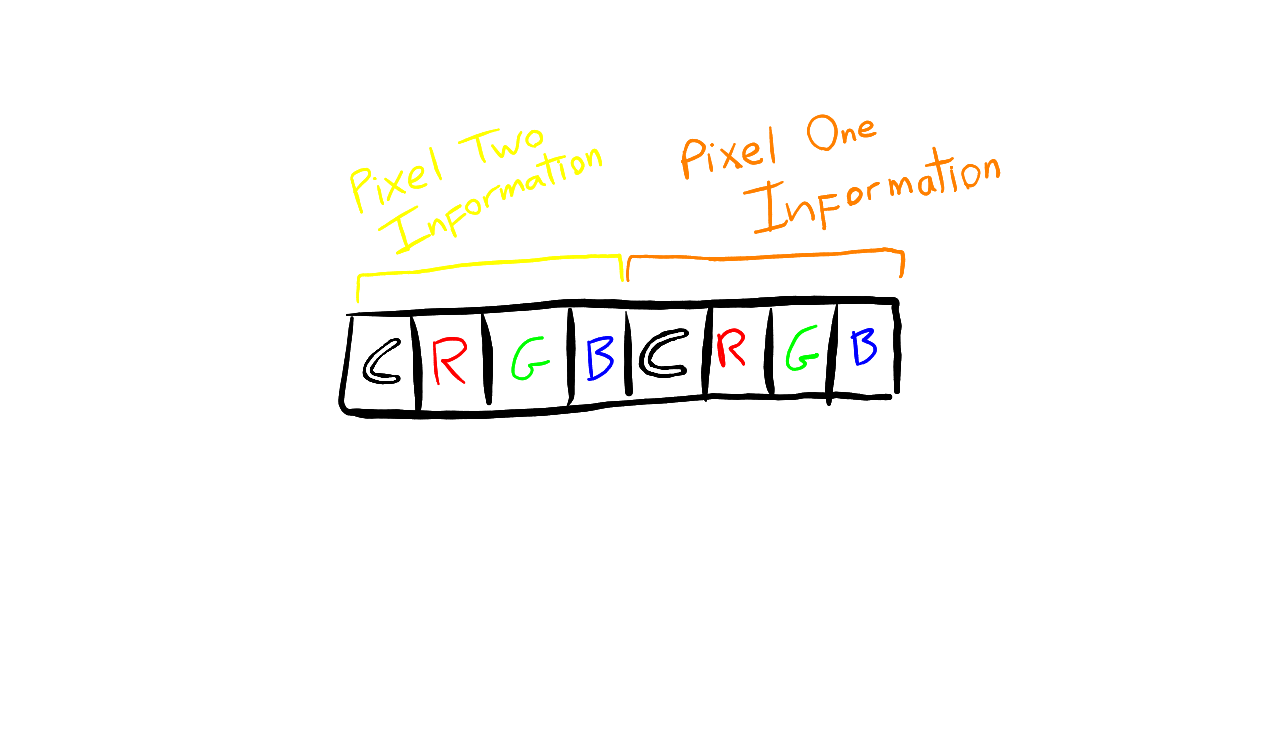 Pixel Two
Information
Pixel One
Information
C R G B C R G B